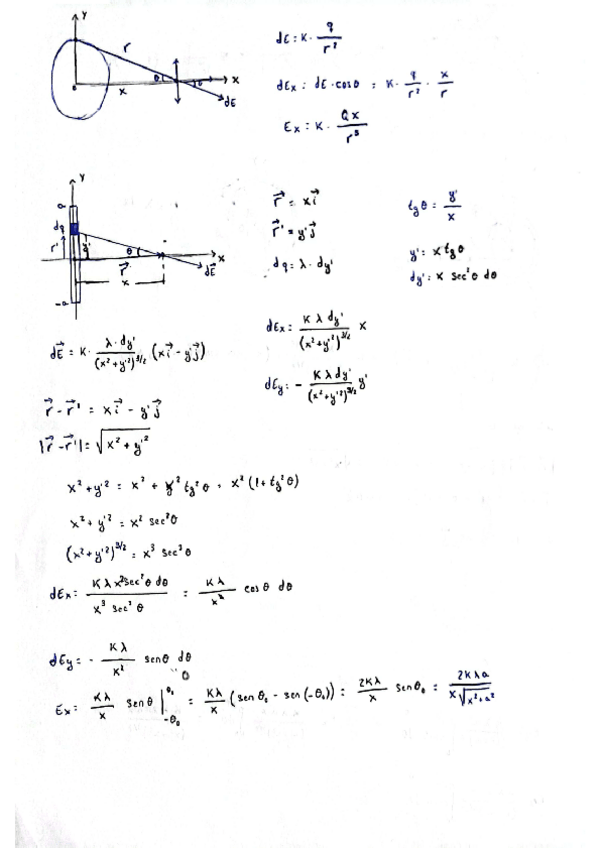 y
r
θ
θ
x
0
x
dE
dE = K · q / r²
dEx = dE · cosθ = K · q / r² · x / r
Ex = K · Qx / r³
y
a
dq
r'
y'
θ
r⃗
x
x
dE⃗
-a
r⃗ = x i⃗
r⃗' = y' j⃗
dq = λ · dy'
tg θ = y' / x
y' = x tg θ
dy' = x sec² θ dθ
dE⃗ = K · λ · dy' / (x² + y'²)^3/2 (x i⃗ - y' j⃗)
dEx = K λ dy' / (x² + y'²)^3/2 x
dEy = - K λ dy' / (x² + y'²)^3/2 y'
r⃗ - r⃗' = x i⃗ - y' j⃗
|r⃗ - r⃗'| = √(x² + y'²)
x² + y'² = x² + x² tg² θ = x² (1 + tg² θ)
x² + y'² = x² sec² θ
(x² + y'²)^3/2 = x³ sec³ θ
dEx = K λ x² sec² θ dθ / x³ sec³ θ = K λ / x cos θ dθ
dEy = - K λ / x sen θ dθ
0
Ex = K λ / x sen θ |_{-θ₀}^{θ₀} = K λ / x (sen θ₀ - sen (-θ₀)) = 2K λ / x sen θ₀ = 2K λ a / x √(x² + a²)